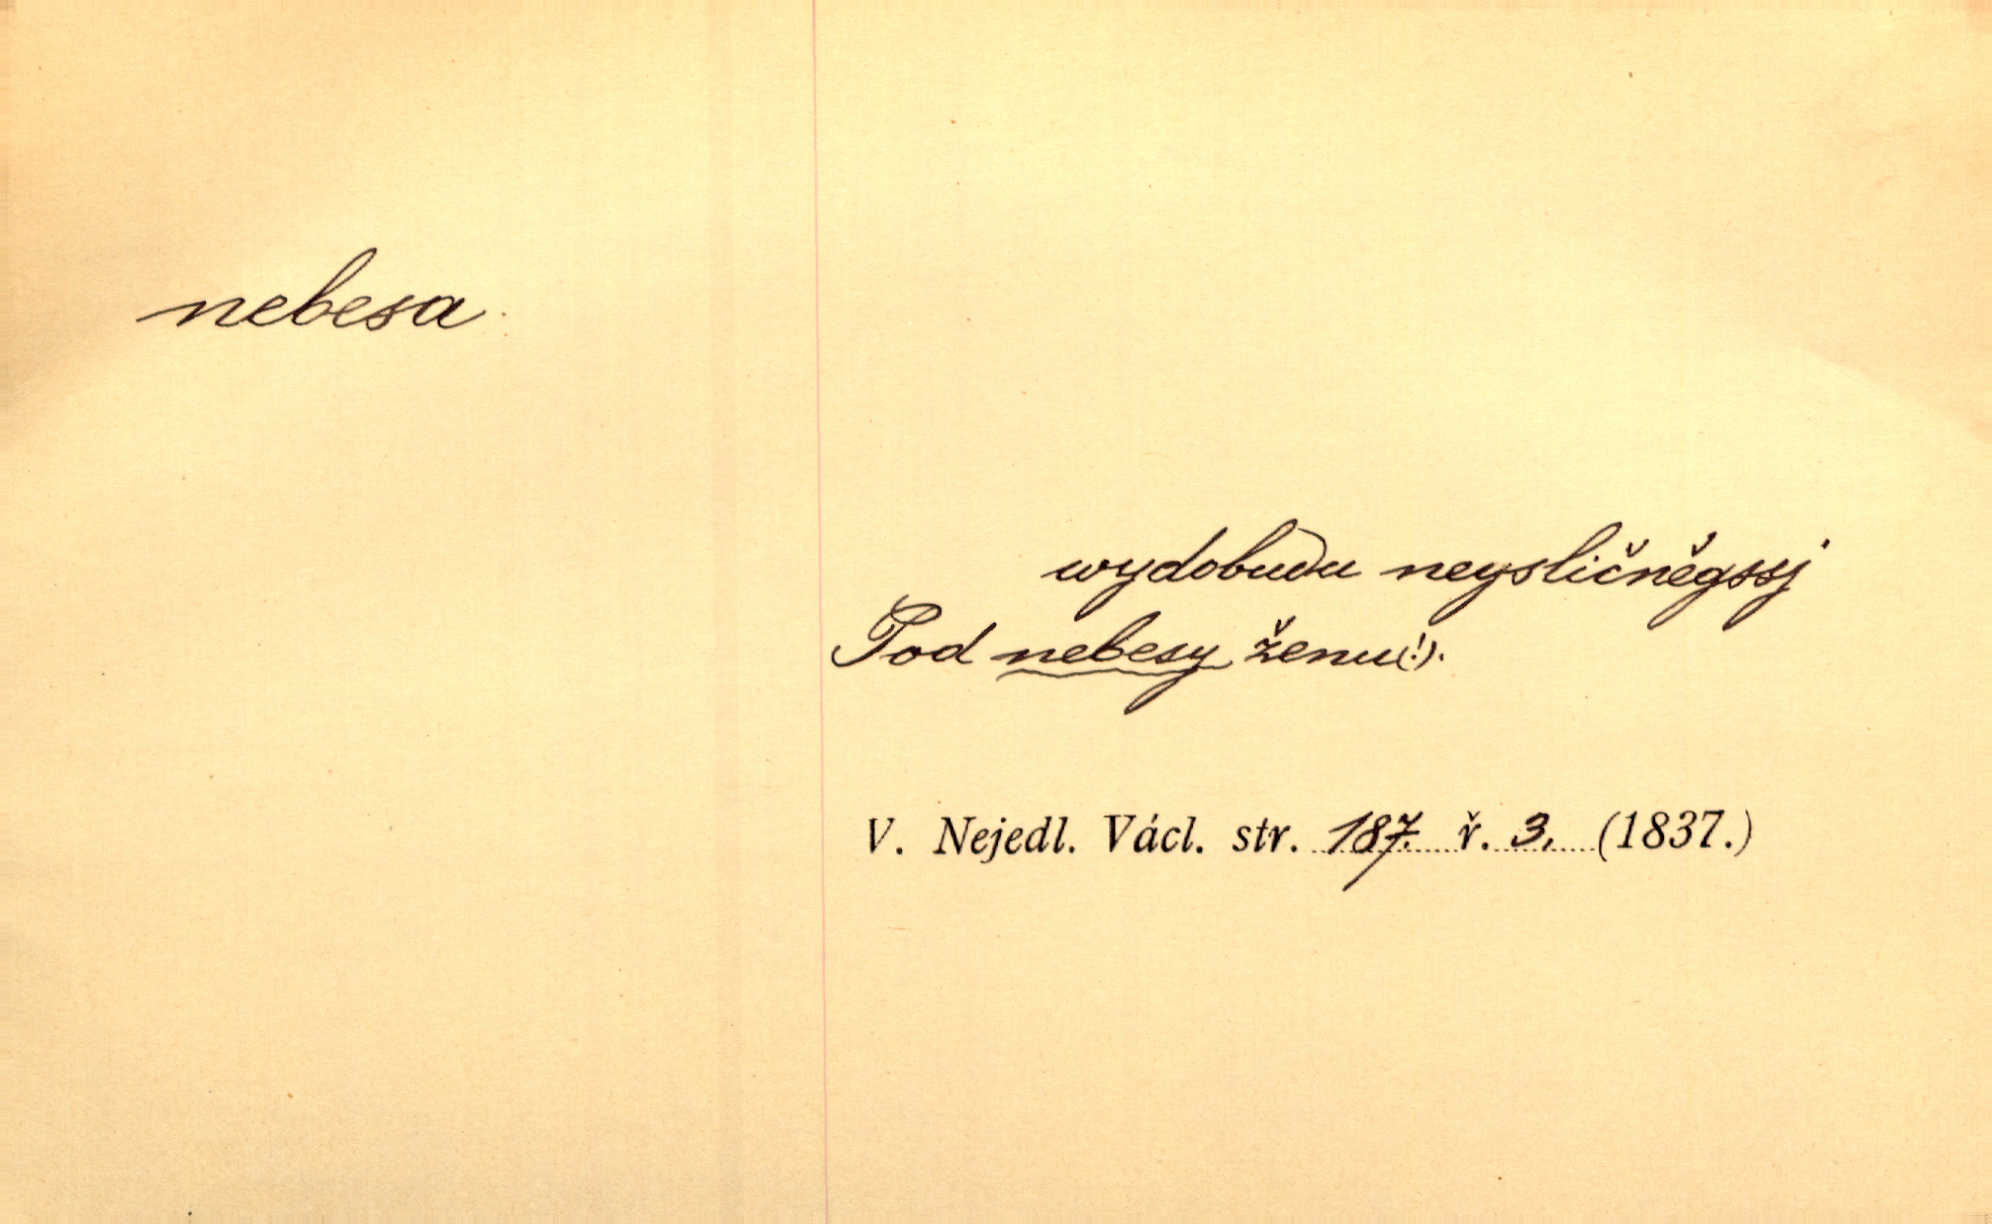 nebesa
wydobudu neysličněgssj
Pod nebesy ženu(!).
V. Nejedl. Václ. str. 187. ř. 3. (1837.)